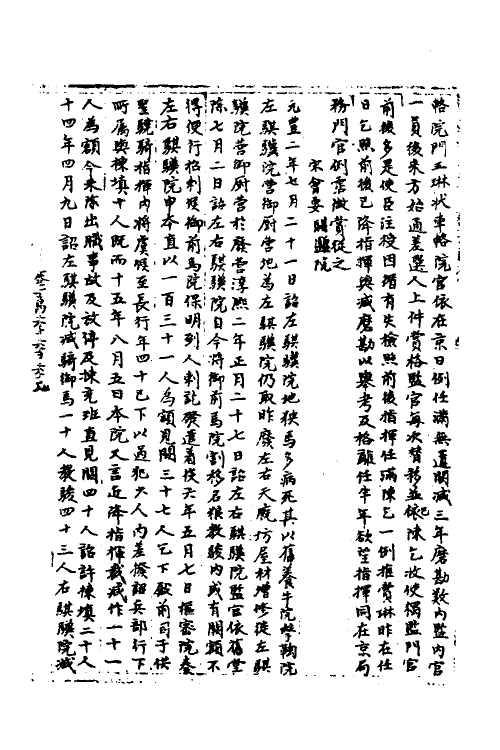 輅院門王琳狀車輅院官依在京日例任滿無遺闕減三年磨勘數內監內官
一員後來方拾適差選人上件賞格監官每次替移並依陳乞收使獨監門官
前後多是使臣注授因循有失檢照前後指揮任滿陳乞一例推賞琳昨在任
日乞照前後已降指揮與減磨勘以舉考及格離任半年欲望指揮同在京局
務門官例霑微賞從之
宋會要 騏驥院
元豐二年七月二十一日詔左騏驥院地狹馬多病死其以舊養牛院鞠院
左騏驥院營御廚營地為左騏驥院仍取昨廢左右天廄坊屋材增修徙左騏
驥院營御廚營於廢營淳熙二年正月二十七日詔左右騏驥院監官依舊堂
除七月二日詔左右騏驥院自今將御前馬院割移名糧教駿內或有闕額不
得便行招刺候御前馬院保明到人刺訖發遣着役六年五月七日樞密院奏
左右騏驥院申本直以一百三十一人為額見闕三十七人乞下殿前司于供
聖驍騎指揮內將虞候至長行年四十已下以過犯人內差撥詔兵部行下
所屬與揀填十人既而十五年八月五日本院又言近降指揮裁減作一十一
人為額今來除出職事故及放停及揀充班直見闕四十人詔許揀填二十人
十四年四月九日詔左騏驥院減騎御馬一十人教駿四十三人右騏驥院減
卷一萬六千六百